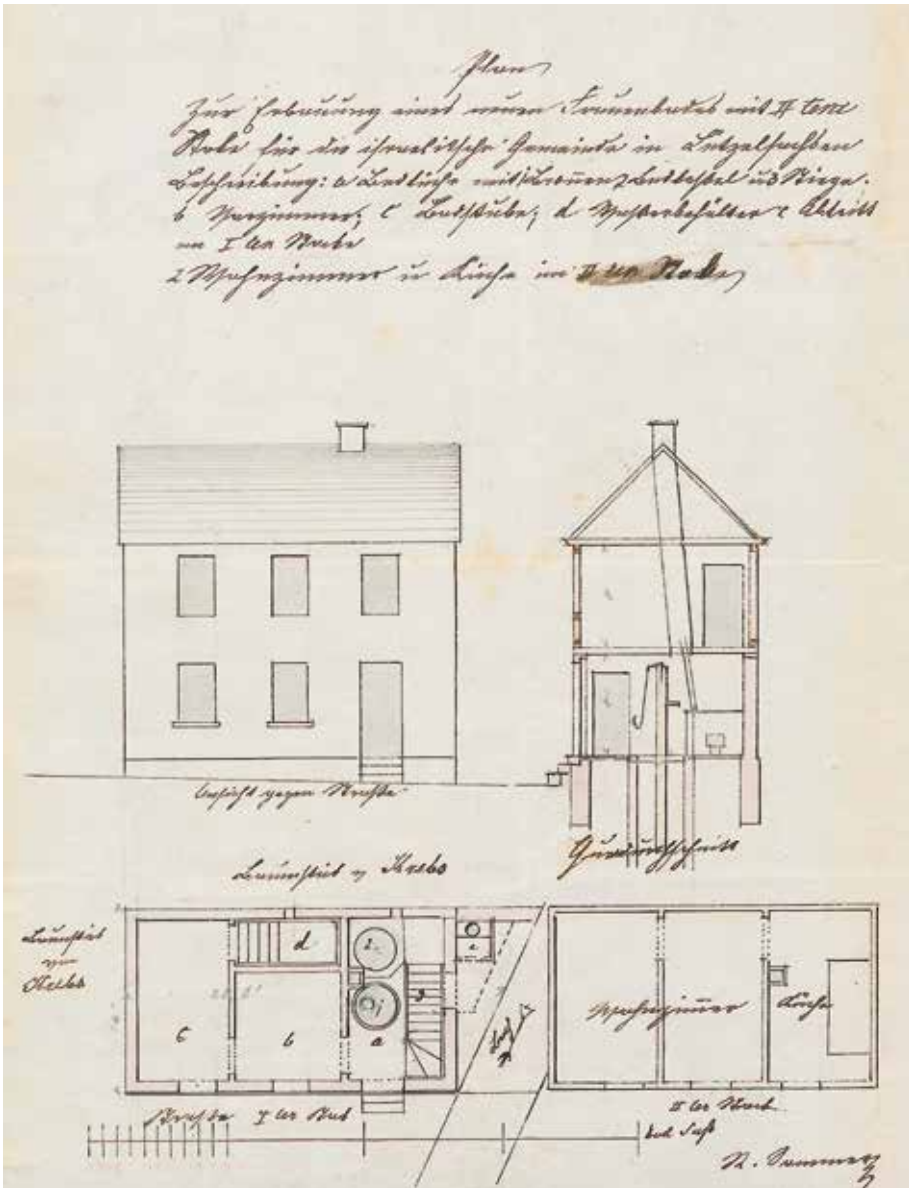 Plan
Zur Erbauung eines neuen Frauenbades mit II tem
Stoke für die israelitsche Gemeinde in Lützelsachsen
Beschreibung: a Badküche mit 1 Brunnen 2 Badkessel u 3 Stiege.
b Vorzimmer; c Badstube; d Wasserbehälter e Abtritt
im I ten Stoke
2 Wohnzimmer u Küche im II ten Stoke
Ansicht gegen Straße
Querdurchschnitt
Krebs
d
2
e
3
1
c
b
a
Wohnzimmer
Küche
Straße
I ter Stock
II ter Stock
bad. Fuß
Sommer